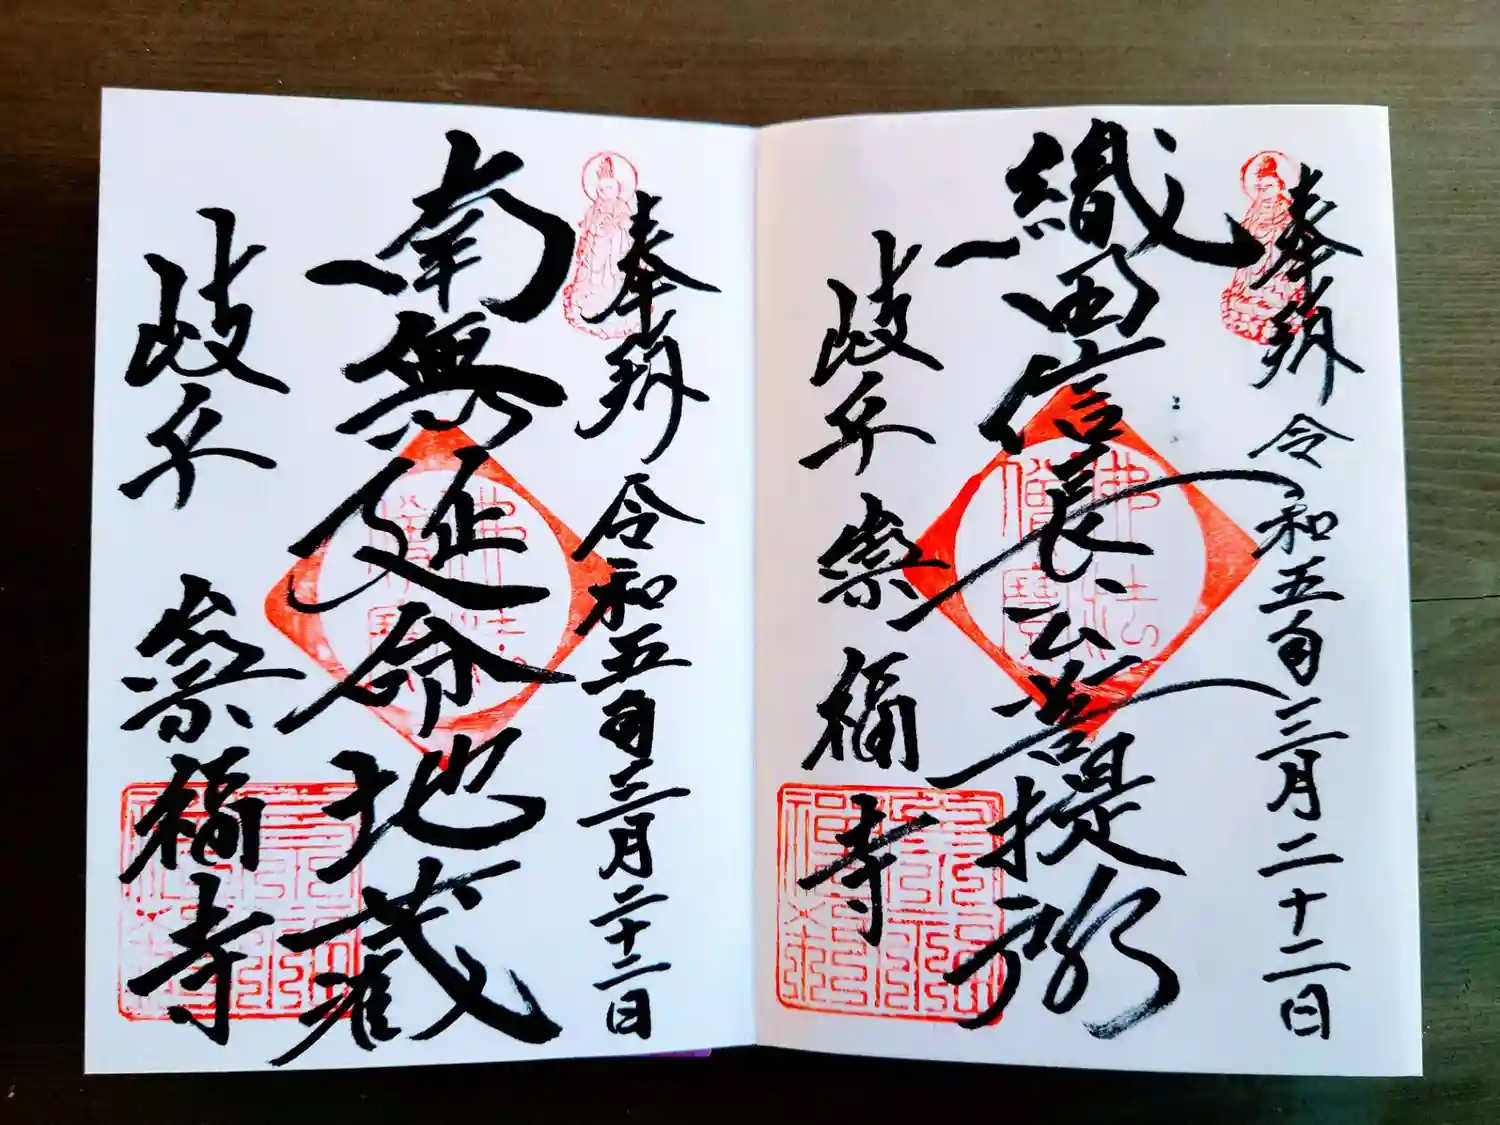 奉拝 令和五年三月二十二日
織田信長公菩提所
佛法
僧寶
岐阜 崇福寺
奉拝 令和五年三月二十二日
南無延命地蔵
佛法
僧寶
岐阜 崇福寺